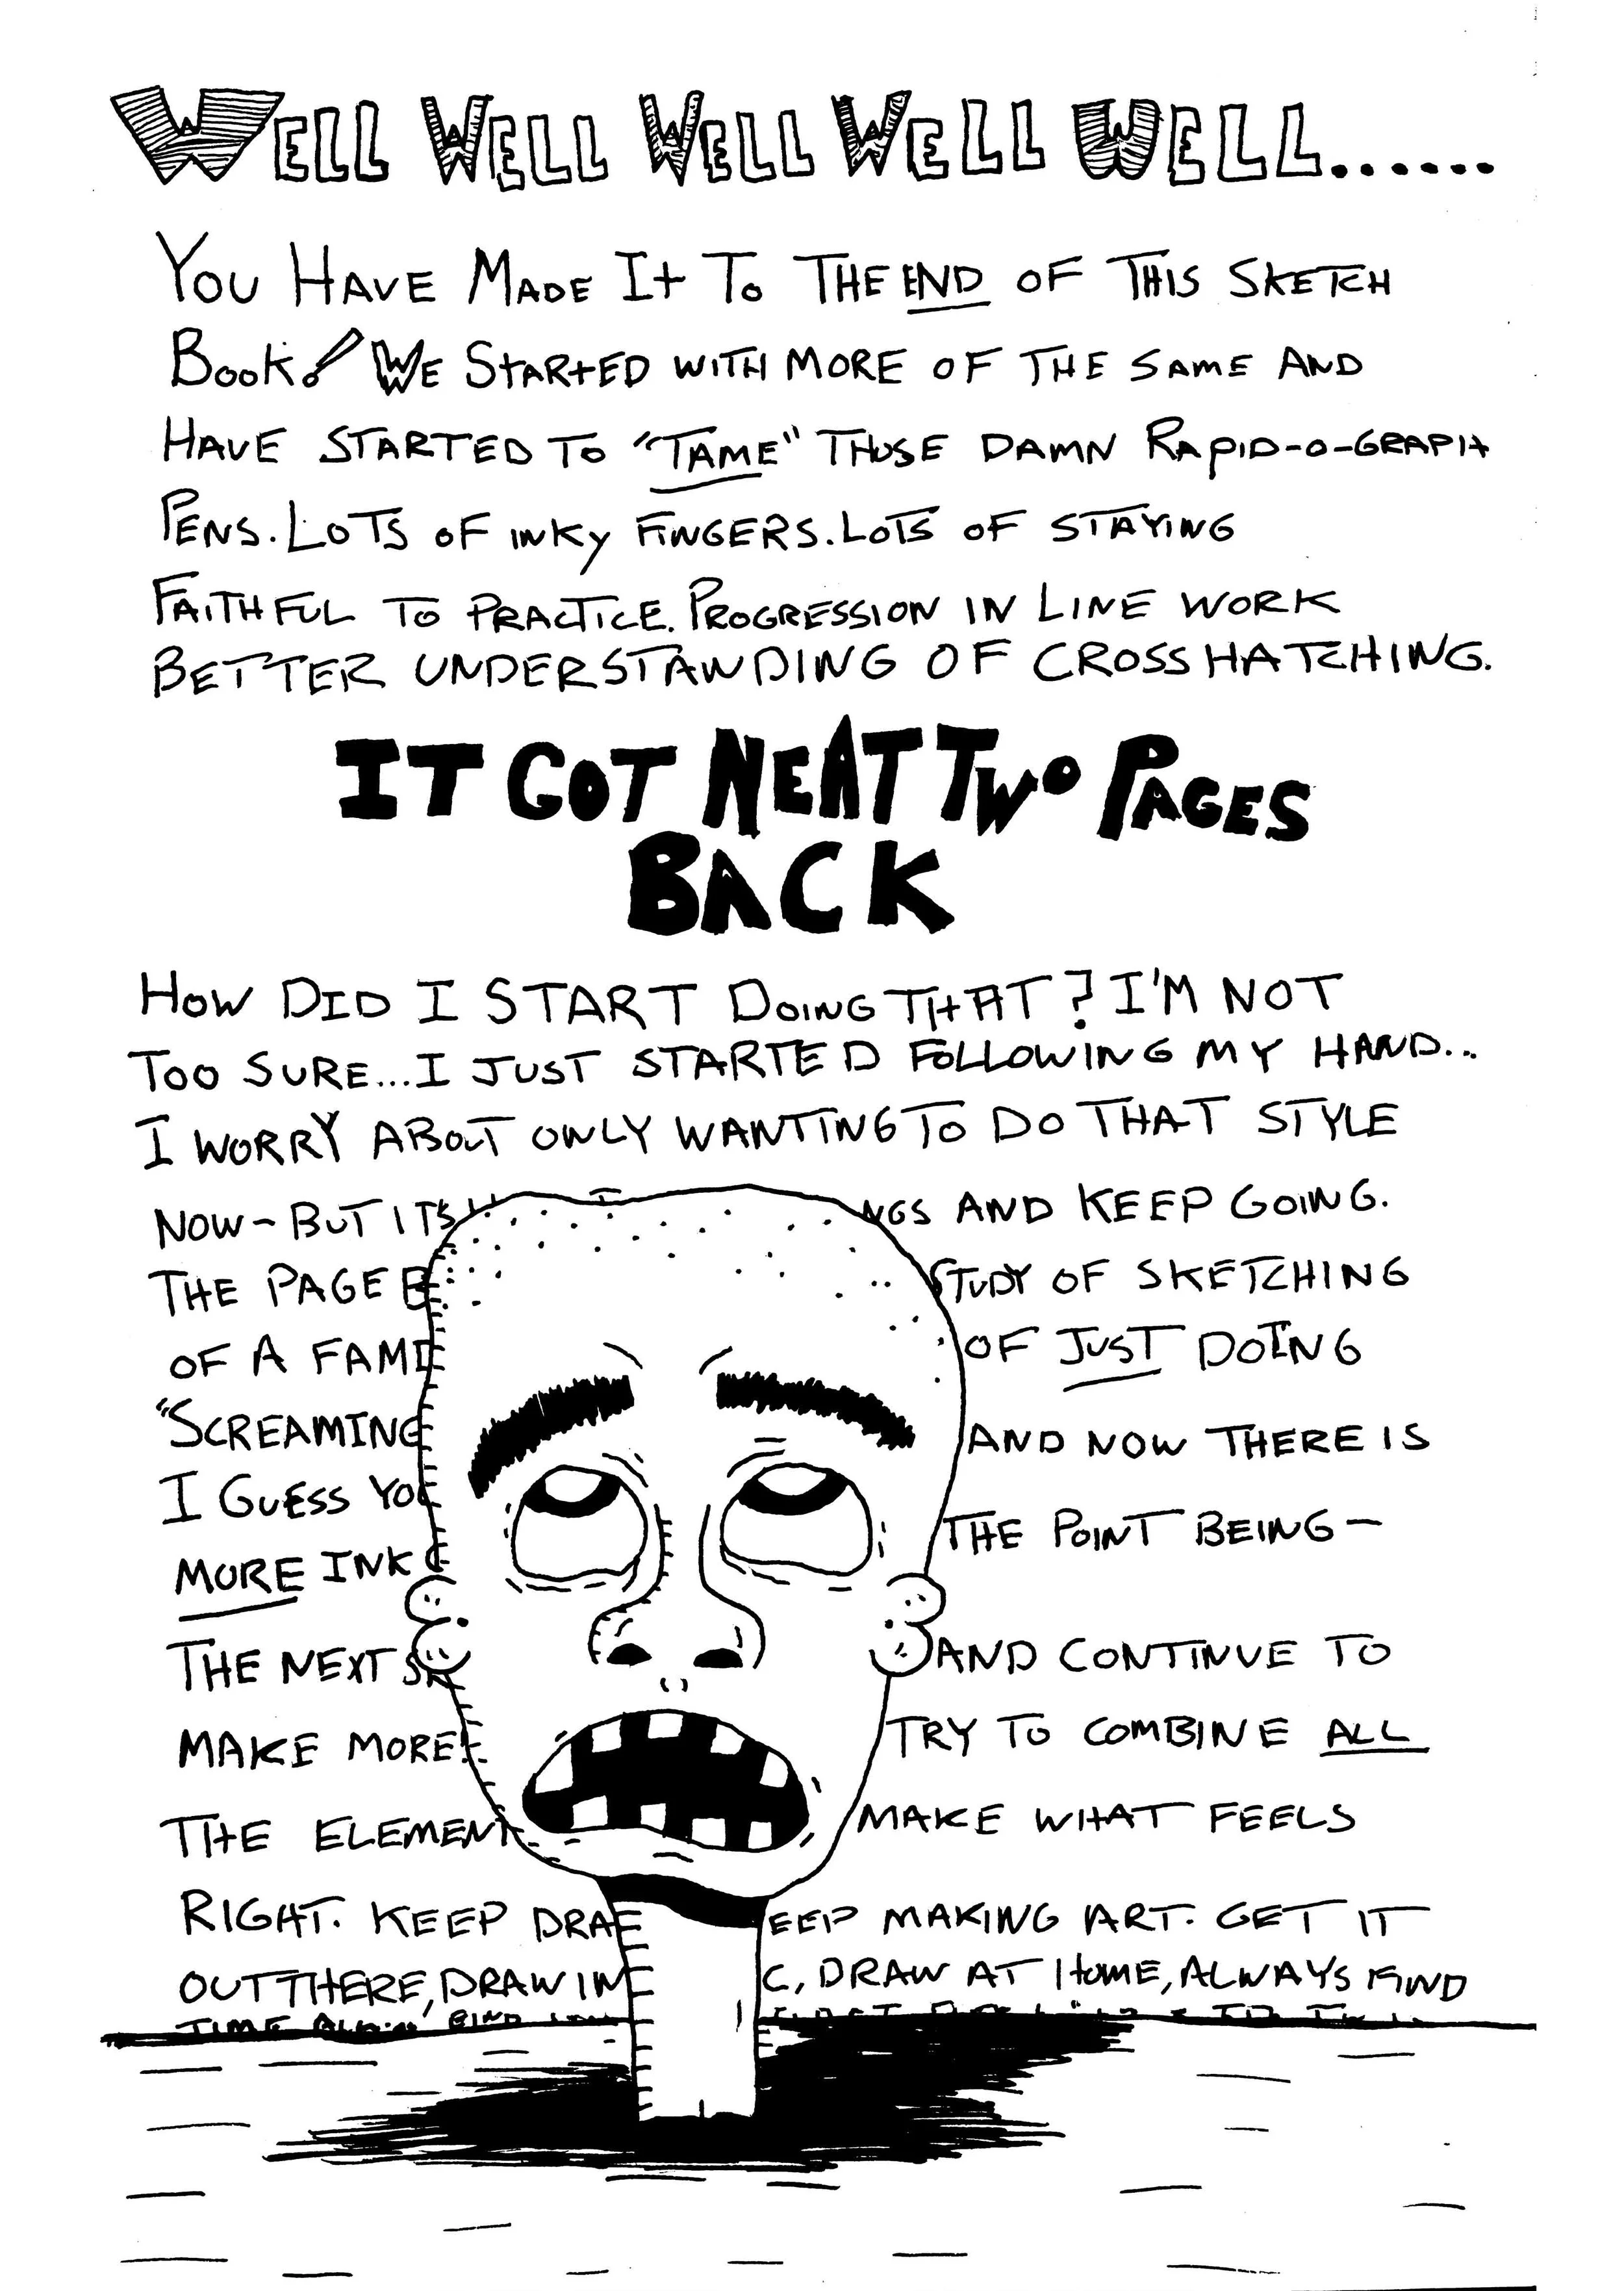 WELL WELL WELL WELL WELL......
YOU HAVE MADE IT TO THE END OF THIS SKETCH
BOOK! WE STARTED WITH MORE OF THE SAME AND
HAVE STARTED TO "TAME" THOSE DAMN RAPID-O-GRAPH
PENS. LOTS OF INKY FINGERS. LOTS OF STAYING
FAITHFUL TO PRACTICE. PROGRESSION IN LINE WORK
BETTER UNDERSTANDING OF CROSS HATCHING.
IT GOT NEAT TWO PAGES
BACK
HOW DID I START DOING THAT? I'M NOT
TOO SURE...I JUST STARTED FOLLOWING MY HAND...
I WORRY ABOUT ONLY WANTING TO DO THAT STYLE
NOW- BUT ITS NGS AND KEEP GOING.
THE PAGE B STUDY OF SKETCHING
OF A FAMI OF JUST DOING
"SCREAMING AND NOW THERE IS
I GUESS YO THE POINT BEING-
MORE INK
THE NEXT SK AND CONTINUE TO
MAKE MORE TRY TO COMBINE ALL
THE ELEMENT MAKE WHAT FEELS
RIGHT. KEEP DRA EEP MAKING ART. GET IT
OUT THERE, DRAW IN C, DRAW AT HOME, ALWAYS FIND
TIME